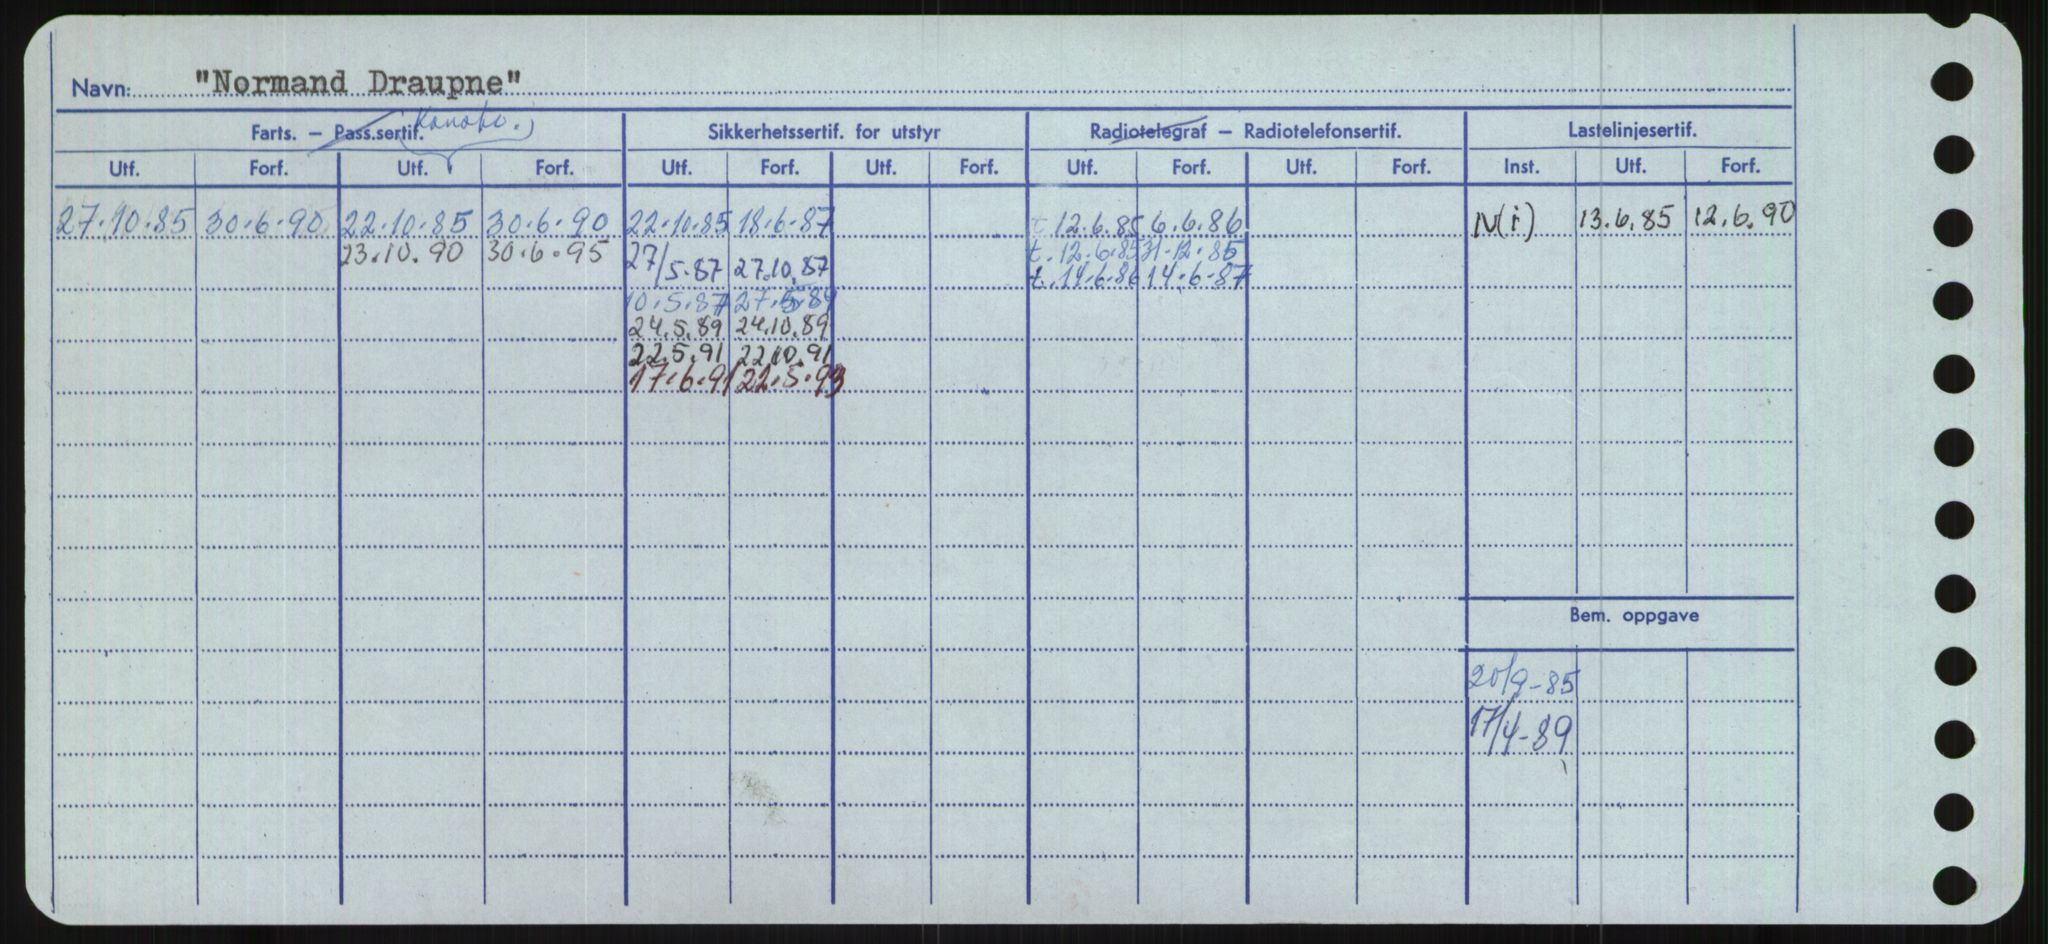 Navn: "Normand Draupne"
Farts. – Pass.sertif. Sikkerhetssertif. for utstyr Radiotelegraf – Radiotelefonsertif. Lastelinjesertif.
Utf. Forf. Utf. Forf. Utf. Forf. Utf. Forf. Utf. Forf. Utf. Forf. Inst. Utf. Forf.
27.10.85 30.6.90 22.10.85 30.6.90 22.10.85 18.6.87 t. 12.6.85 6.6.86 N(i) 13.6.85 12.6.90
23.10.90 30.6.95 27/5.87 27.10.87 t. 12.6.85 31.12.85
t. 14.6.86 14.6.87
10.5.87 27.5.89
24.5.89 24.10.89
22.5.91 22.10.91
17.6.91 22.5.93
Bem. oppgave
20/9-85
17/4-89